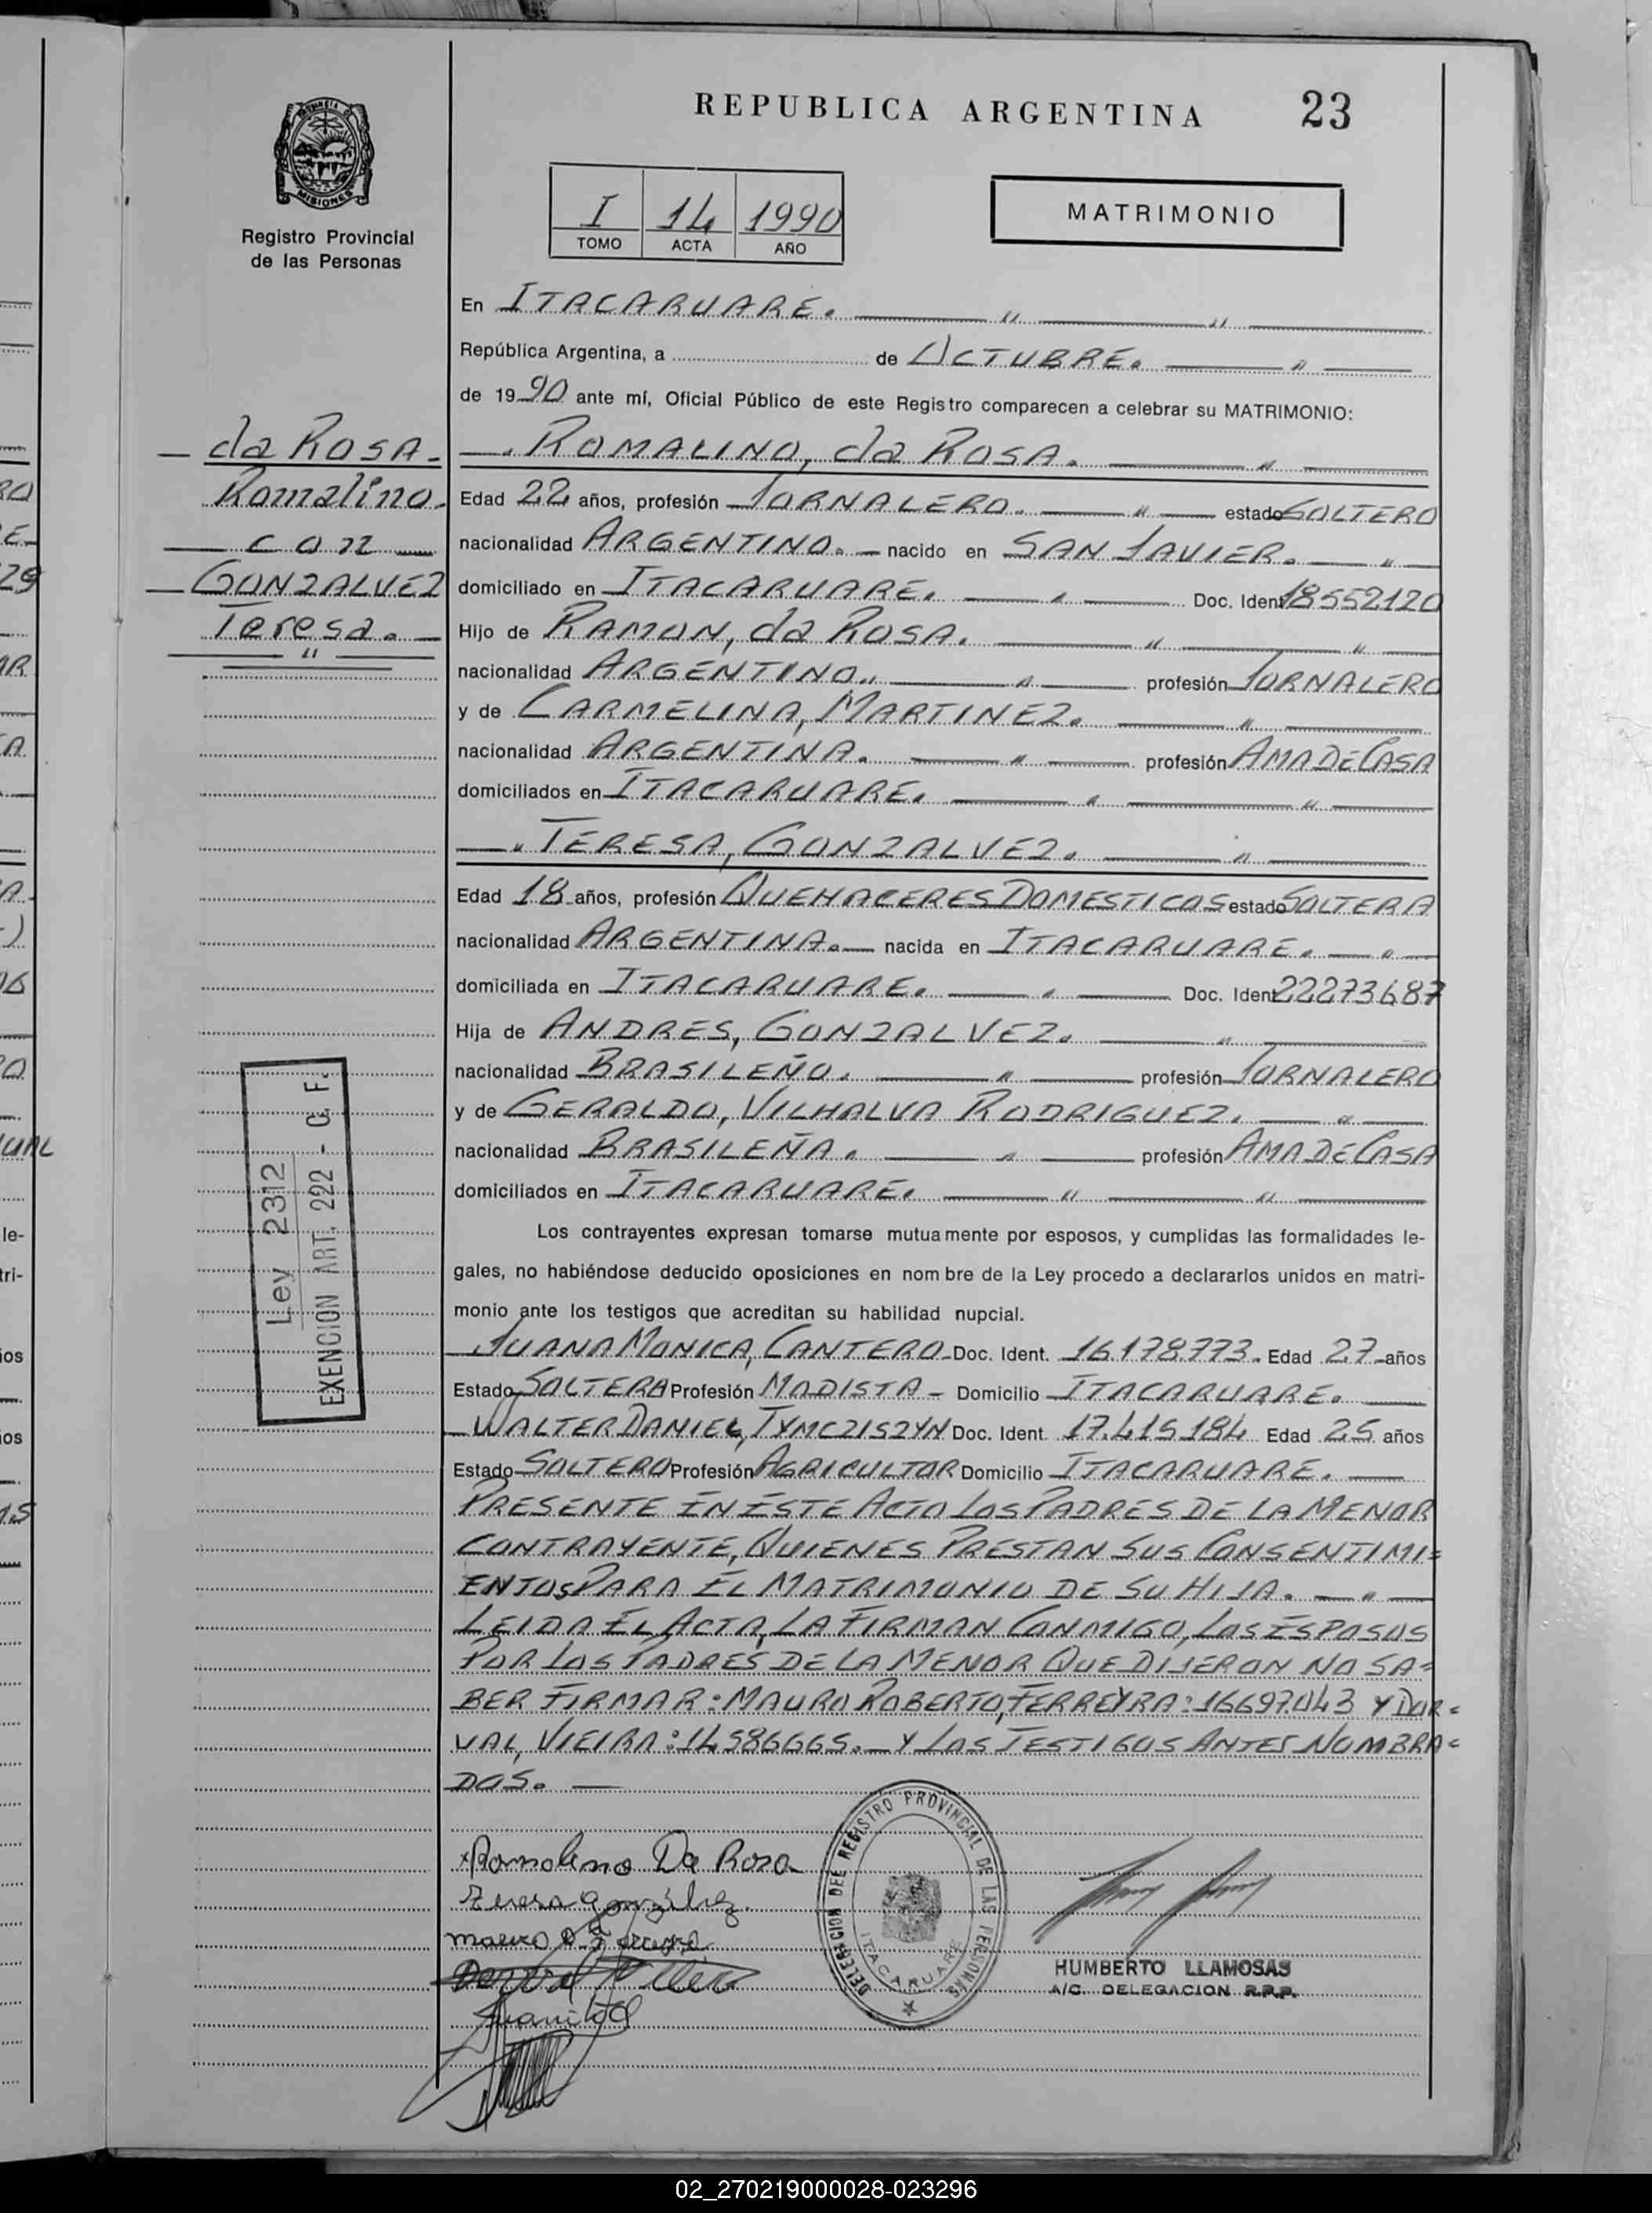 REPUBLICA ARGENTINA 23
PROVINCIA DE MISIONES
Registro Provincial
de las Personas
I 14 1990
TOMO ACTA AÑO
MATRIMONIO
En ITACARUARE.
República Argentina, a de OCTUBRE.
de 1990 ante mí, Oficial Público de este Registro comparecen a celebrar su MATRIMONIO:
da ROSA
Romalino.
con
GONZALVEZ
Teresa.
ROMALINO, da ROSA.
Edad 22 años, profesión JORNALERO. estado SOLTERO
nacionalidad ARGENTINO. nacido en SAN JAVIER.
domiciliado en ITACARUARE. Doc. Ident 18552120
Hijo de RAMON, da ROSA.
nacionalidad ARGENTINO. profesión JORNALERO
y de CARMELINA, MARTINEZ.
nacionalidad ARGENTINA. profesión AMA DE CASA
domiciliados en ITACARUARE.
TERESA, GONZALVEZ.
Edad 18 años, profesión QUEHACERES DOMESTICOS estado SOLTERA
nacionalidad ARGENTINA. nacida en ITACARUARE.
domiciliada en ITACARUARE. Doc. Ident 22273687
Hija de ANDRES, GONZALVEZ.
nacionalidad BRASILEÑO. profesión JORNALERO
y de GERALDO, VILHALVA RODRIGUEZ.
nacionalidad BRASILEÑA. profesión AMA DE CASA
domiciliados en ITACARUARE.
Ley 2312
EXENCION ART. 222 - C. F.
Los contrayentes expresan tomarse mutuamente por esposos, y cumplidas las formalidades le-
gales, no habiéndose deducido oposiciones en nombre de la Ley procedo a declararlos unidos en matri-
monio ante los testigos que acreditan su habilidad nupcial.
JUANA MONICA, CANTERO Doc. Ident. 16.178.773. Edad 27 años
Estado SOLTERA Profesión MODISTA - Domicilio ITACARUARE.
WALTER DANIEL, TYMCZISZYN Doc. Ident. 17.415.184 Edad 25 años
Estado SOLTERO Profesión AGRICULTOR Domicilio ITACARUARE.
PRESENTE EN ESTE ACTO LOS PADRES DE LA MENOR
CONTRAYENTE, QUIENES PRESTAN SUS CONSENTIMI=
ENTOS PARA EL MATRIMONIO DE SU HIJA.
LEIDA EL ACTA, LA FIRMAN CONMIGO, LOS ESPOSOS
POR LOS PADRES DE LA MENOR QUE DIJERON NO SA=
BER FIRMAR: MAURO ROBERTO, FERREYRA: 16697.043 Y DOR=
VAL, VIEIRA: 14586665. Y LOS TESTIGOS ANTES NOMBRA=
DOS.
Romolino Da Rosa
Teresa gonzalvez
mauro
Juanita
DELEGACION DEL REGISTRO PROVINCIAL DE LAS PERSONAS
ITACARUARE
HUMBERTO LLAMOSAS
A/C. DELEGACION R.P.P.
02_270219000028-023296